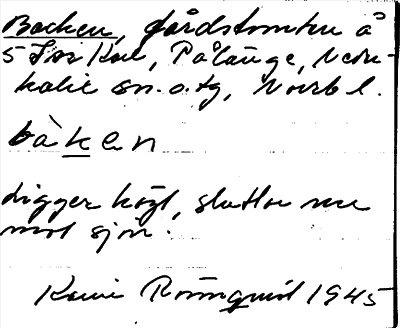 Backen, gårdstomten å
5 Pålänge, Neder-
kalix sn. o. tg, Norrb l.
bàken
Ligger högt, sluttar ner
mot sjön.
Karin Rönnquist 1945